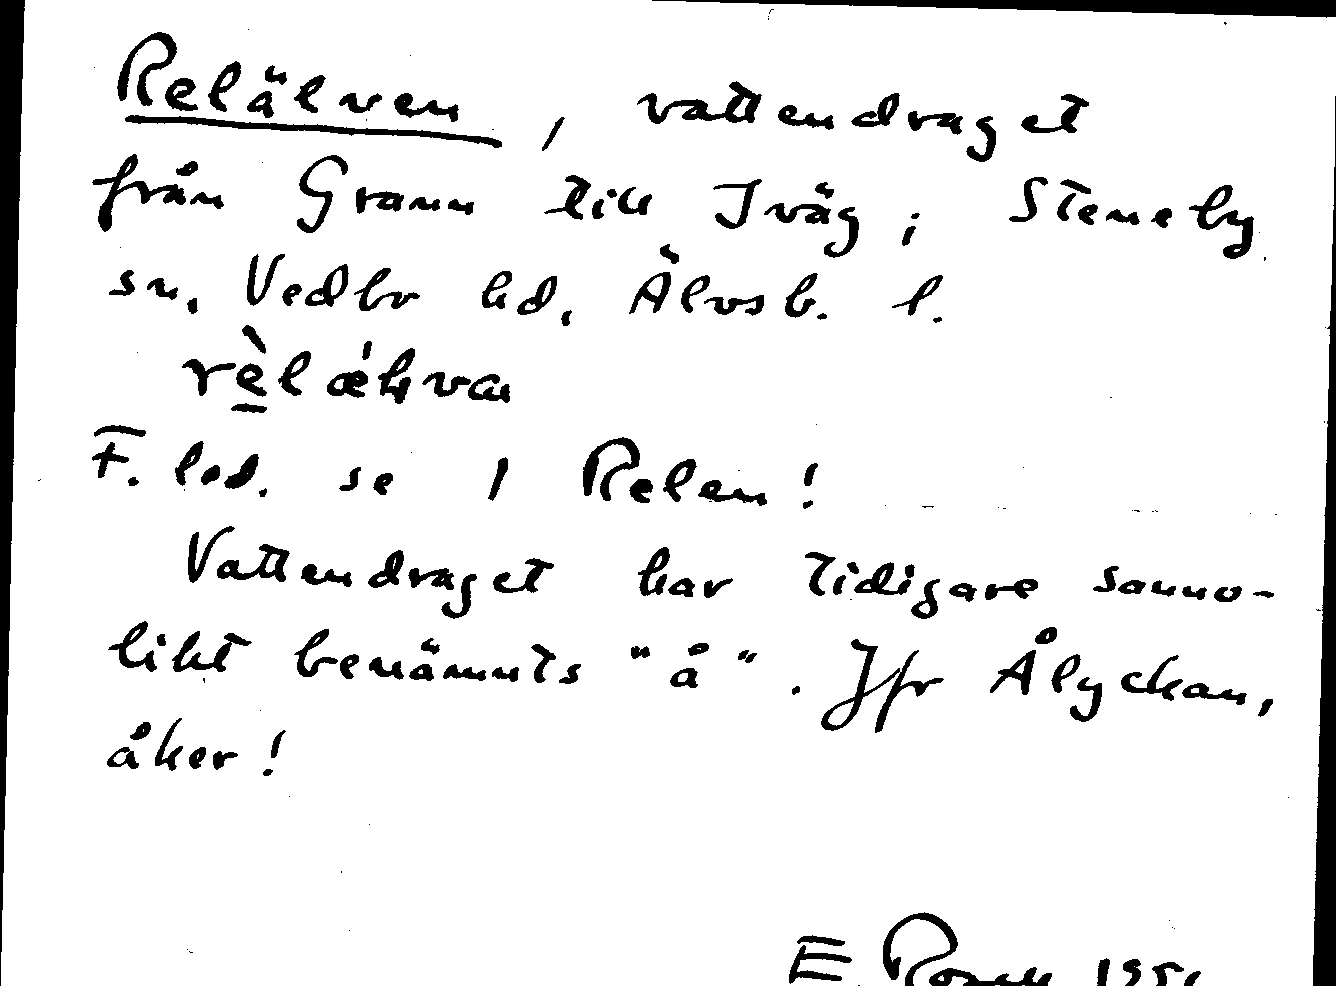 Relälven, vattendraget
från Grann till Iväg, Steneby
sn, Vedbo hd, Älvsb. l.
rèlǽlvan
F. led. se 1 Relen!
Vattendraget har tidigare sanno-
likt benämnts "å". Jfr Ålyckan,
åker!
E.